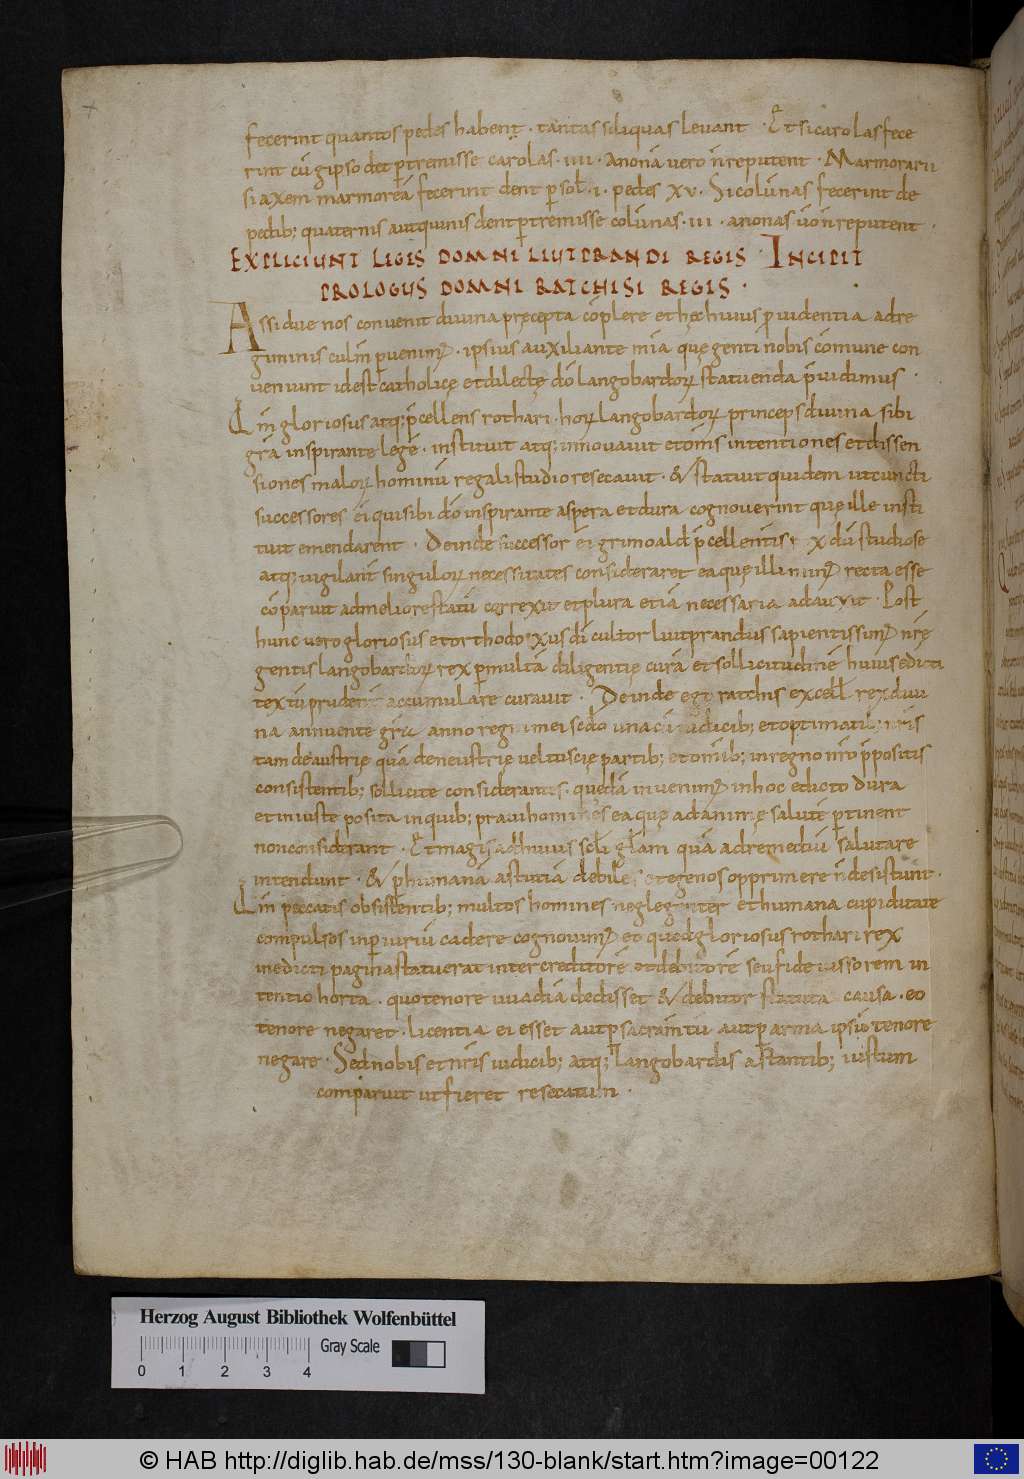 fecerint quantos pedes habent · tantas siliquas levant · Et si carolas fece
rint cū gipso det p̄tremisse carolas · iiii · anonā vero n̄ reputent · Marmorarii
si axem marmoreā fecerint dent p sol · i · pedes xv · Si colūnas fecerint de
pedib; quaternis aut quinis dent p tremisse colūnas · iii · anonas ūo n̄ reputent ·
EXPLICIUNT LEGIS DOMNI LIUTPRANDI REGIS · INCIPIT
PROLOGUS DOMNI RATCHISI REGIS ·
Assidue nos convenit divina pręcepta cōplere et hęc huius p̄videntia ad re
giminis culm̄ pvenim⁊ · ipsius auxiliante mīa quę genti nobis cōmune con
veniunt id est catholicę et dilectę dō langobardoꝝ statuenda p̄vidimus ·
Qm̄ gloriosus atq; p̄cellens rothari · hoꝝ langobardoꝝ princeps divina sibi
grā inspirante legē · instituit atq; innovavit et om̄s intentiones et dissen
siones maloꝝ hominū regali studio resecavit · & statuit quidem ut cuncti
successores ei qui sibi dō inspirante aspera et dura cognoverint quę ille insti
tuit emendarent · Deinde successor ei grimoald p̄cellentis r x dū studiose
atq; vigilanť singuloꝝ necessitates consideraret ea quę illi nim⁊ recta esse
cōparuit ad meliorē statū correxit et plura etiā necessaria adauxit · Post
hunc vero gloriosus et orthodoxus dī cultor liutprandus sapientissim⁊ nr̄ę
gentis langobardoꝝ rex p multā diligentię curā et sollicitudinē huius edicti
textū prudent accumulare curavit · Deinde ego ratchis excell rex divi
na annuente grā anno regni mei scd̄o una cū iudicib; et optimatib; nr̄is
tam de austrię quā de neustrię vel tuscię partib; et om̄ib; in regno nr̄o p̄positis
consistentib; sollicite considerantes · quędā invenim⁊ in hoc edicto dura
et iniuste posita in quib; pravi homines ea quę ad animę salutē p̄tinent
non considerant · Et magis ad huius scłi głam quā ad remediū salutare
intendunt · & p humanā astutiā debiles et egenos opprimere n̄ desistunt ·
Qm̄ peccatis obsistentib; multos homines neglegenter et humana cupiditate
compulsos in p̄iuriū cadere cognovim⁊ et quod gloriosus rothari rex
in edicti pagina statuerat inter creditorē et debitorē seu fideiussorem in
tentio horta · quo tenore wadiā dedisset & debitor statuta causa · eo
tenore negaret · licentia ei esset aut p sacram̄tū aut p arma ipsū tenore
negare · Sed nobis et nr̄is iudicib; atq; langobardis astantib; iustum
comparuit ut fieret resecatum ·
Herzog August Bibliothek Wolfenbüttel
Gray Scale
0 1 2 3 4
© HAB http://diglib.hab.de/mss/130-blank/start.htm?image=00122